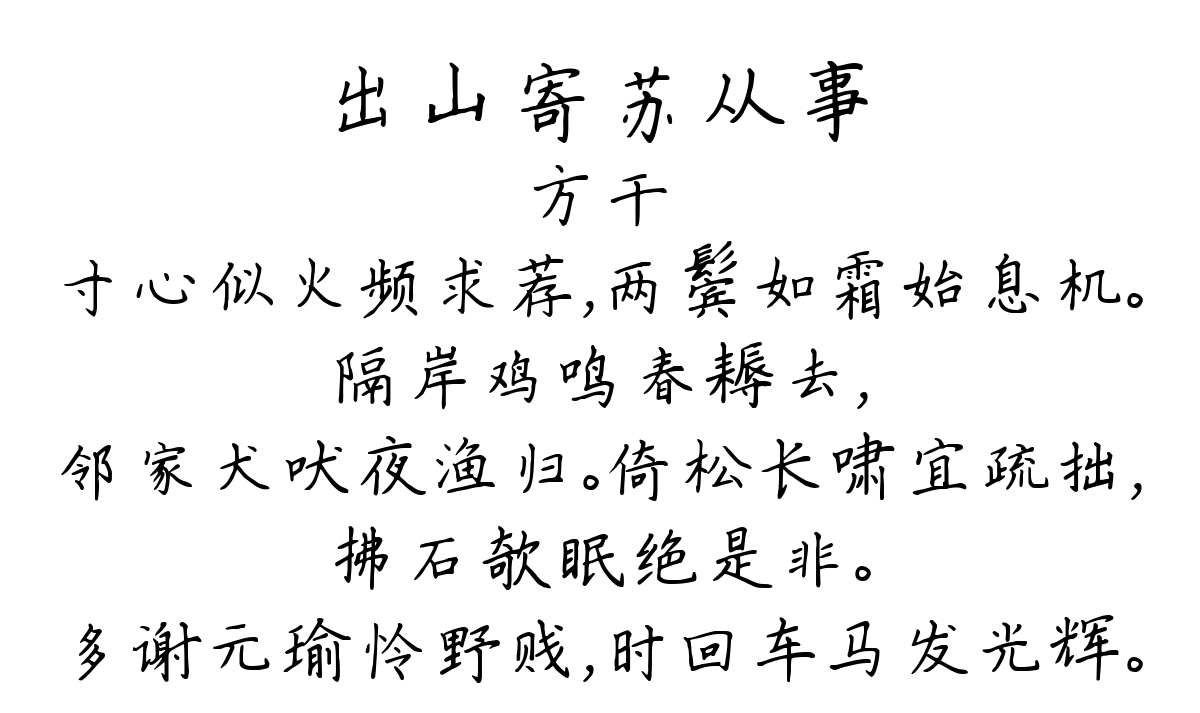 出山寄苏从事
方干
寸心似火频求荐,两鬓如霜始息机。
隔岸鸡鸣春耨去,
邻家犬吠夜渔归。倚松长啸宜疏拙,
拂石欹眠绝是非。
多谢元瑜怜野贱,时回车马发光辉。